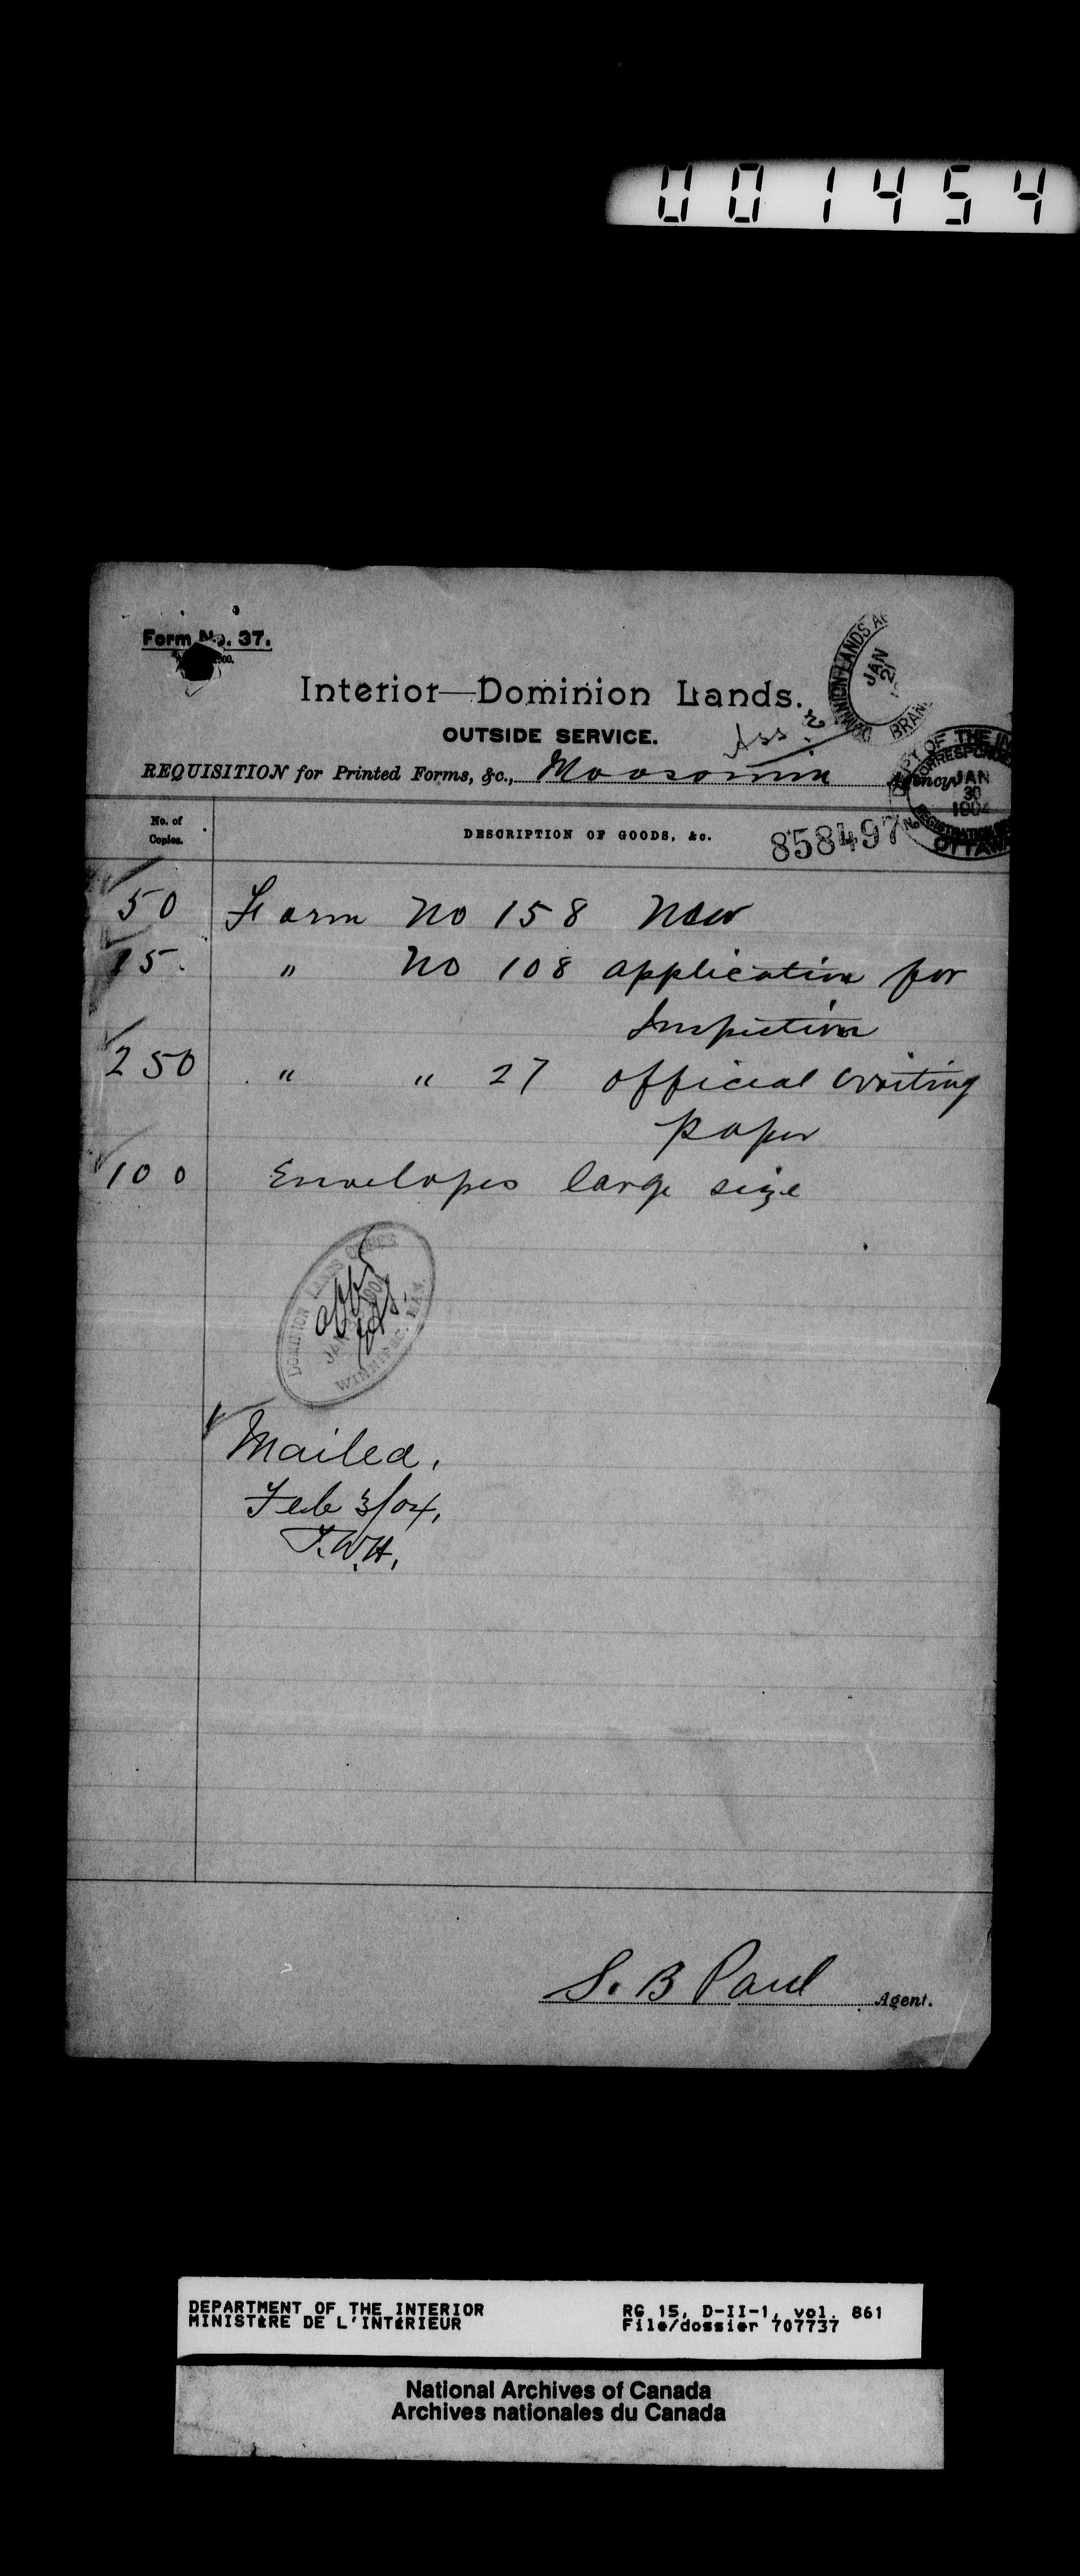 001454
Form No. 37.
Interior—Dominion Lands.
OUTSIDE SERVICE.
REQUISITION for Printed Forms, &c., Moosomin Agency
DOMINION LANDS
JAN 21
BRAN
DEPT OF THE IN
CORRESPONDE
JAN
30
1904
REGISTRATION
OTTAWA
No. 858497
No. of
Copies.
DESCRIPTION OF GOODS, &c.
50 Form No 158 New
15 " No 108 application for
Inspection
250 " " 27 official writing
paper
100 Envelopes large size
DOMINION LANDS OFFICE
JAN
WINNIPEG, MAN.
Mailed,
Feb 3/04,
T.W.H.
S. B Paul Agent.
DEPARTMENT OF THE INTERIOR
MINISTÈRE DE L'INTÉRIEUR
RG 15, D-II-1, vol. 861
File/dossier 707737
National Archives of Canada
Archives nationales du Canada